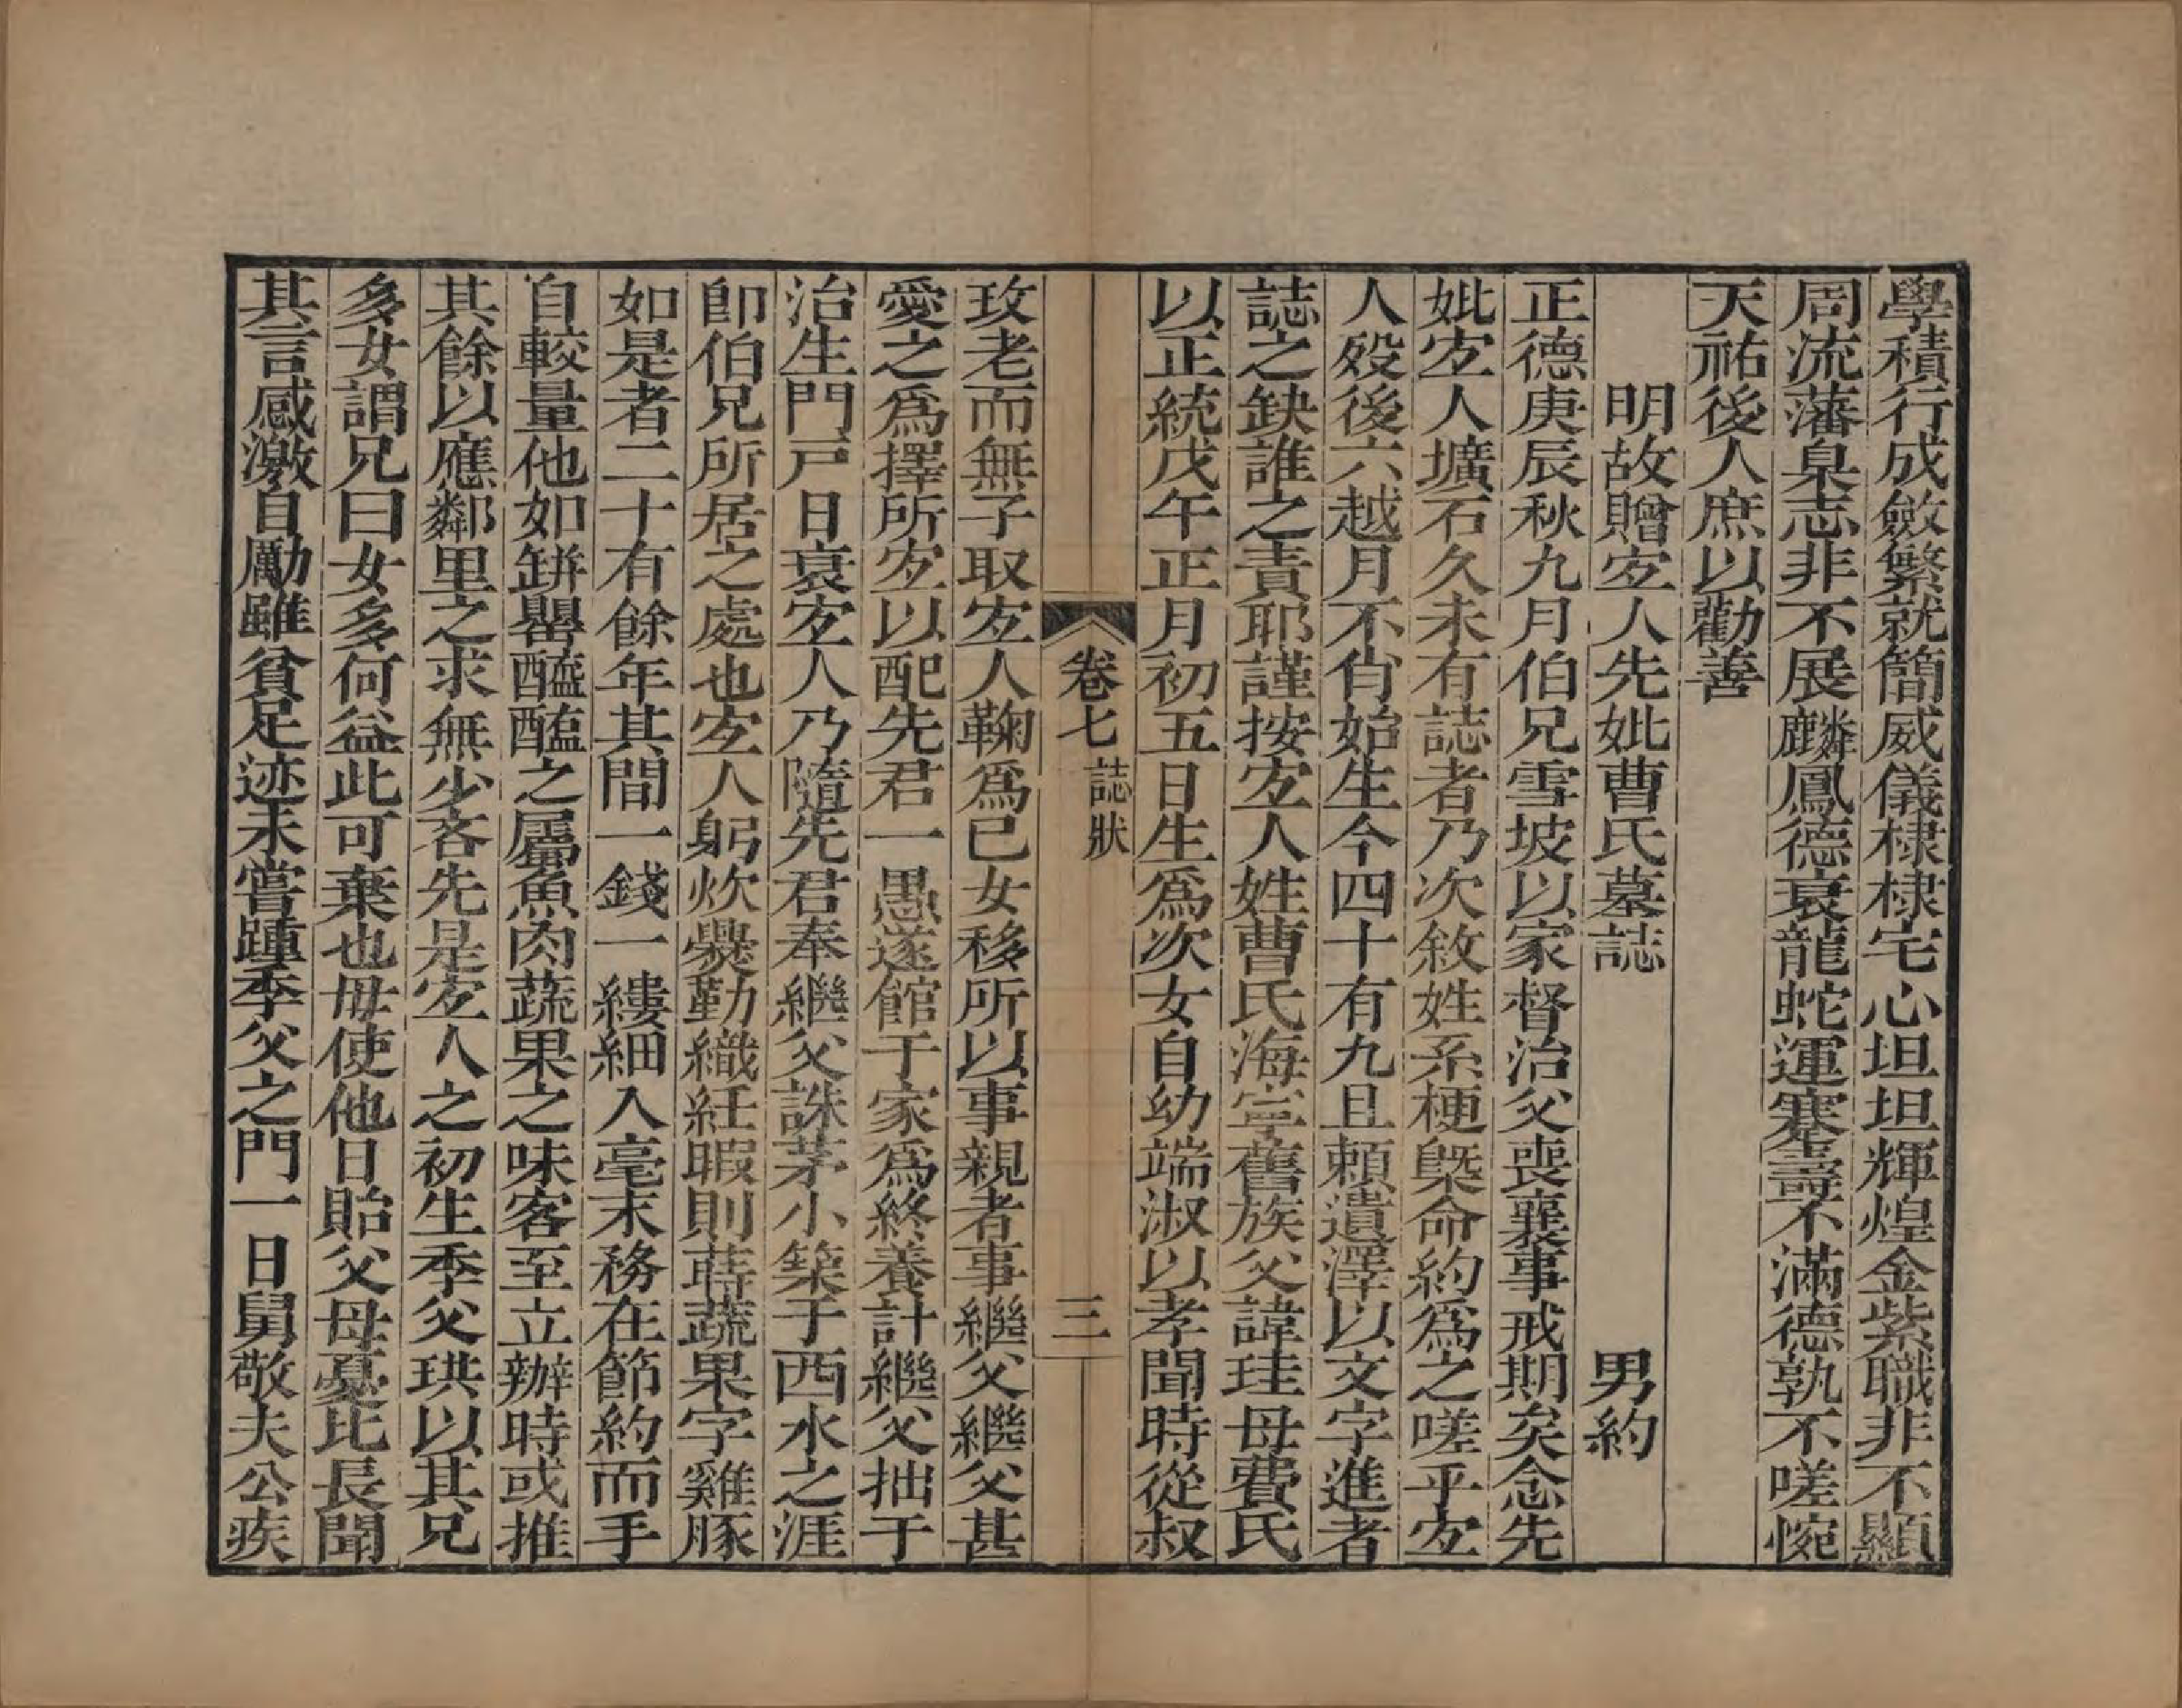 學積行成斂繁就簡威儀棣棣宅心坦坦輝煌金紫職非不顯
周流藩臬志非不展麟鳳德衰龍蛇運蹇壽不滿德孰不嗟惋
天祐後人庶以勸善
明故贈宐人先妣曹氏墓誌　男約
正德庚辰秋九月伯兄雪坡以家督治父喪襄事戒期矣念先
妣宐人壙石久未有誌者乃次敘姓系梗槩命約爲之嗟乎宐
人歿後六越月不肖始生今四十有九且賴遺澤以文字進者
誌之缺誰之責耶謹按宐人姓曹氏海寧舊族父諱珪母費氏
以正統戊午正月初五日生爲次女自幼端淑以孝聞時從叔
卷七　誌狀　三
玫老而無子取宐人鞠爲已女移所以事親者事繼父繼父甚
愛之爲擇所宐以配先君一愚遂館于家爲終養計繼父拙于
治生門戸日衰宐人乃隨先君奉繼父誅茅小築于西水之涯
卽伯兄所居之處也宐人躬炊爨勤織紝暇則蒔蔬果字雞豚
如是者二十有餘年其間一錢一縷細入毫末務在節約而手
自較量他如缾罌醯醢之屬魚肉蔬果之味客至立辦時或推
其餘以應鄰里之求無少吝先是宐人之初生季父珙以其兄
多女謂兄曰女多何益此可棄也毋使他日貽父母憂比長聞
其言感激自勵雖貧足迹未嘗踵季父之門一日舅敬夫公疾